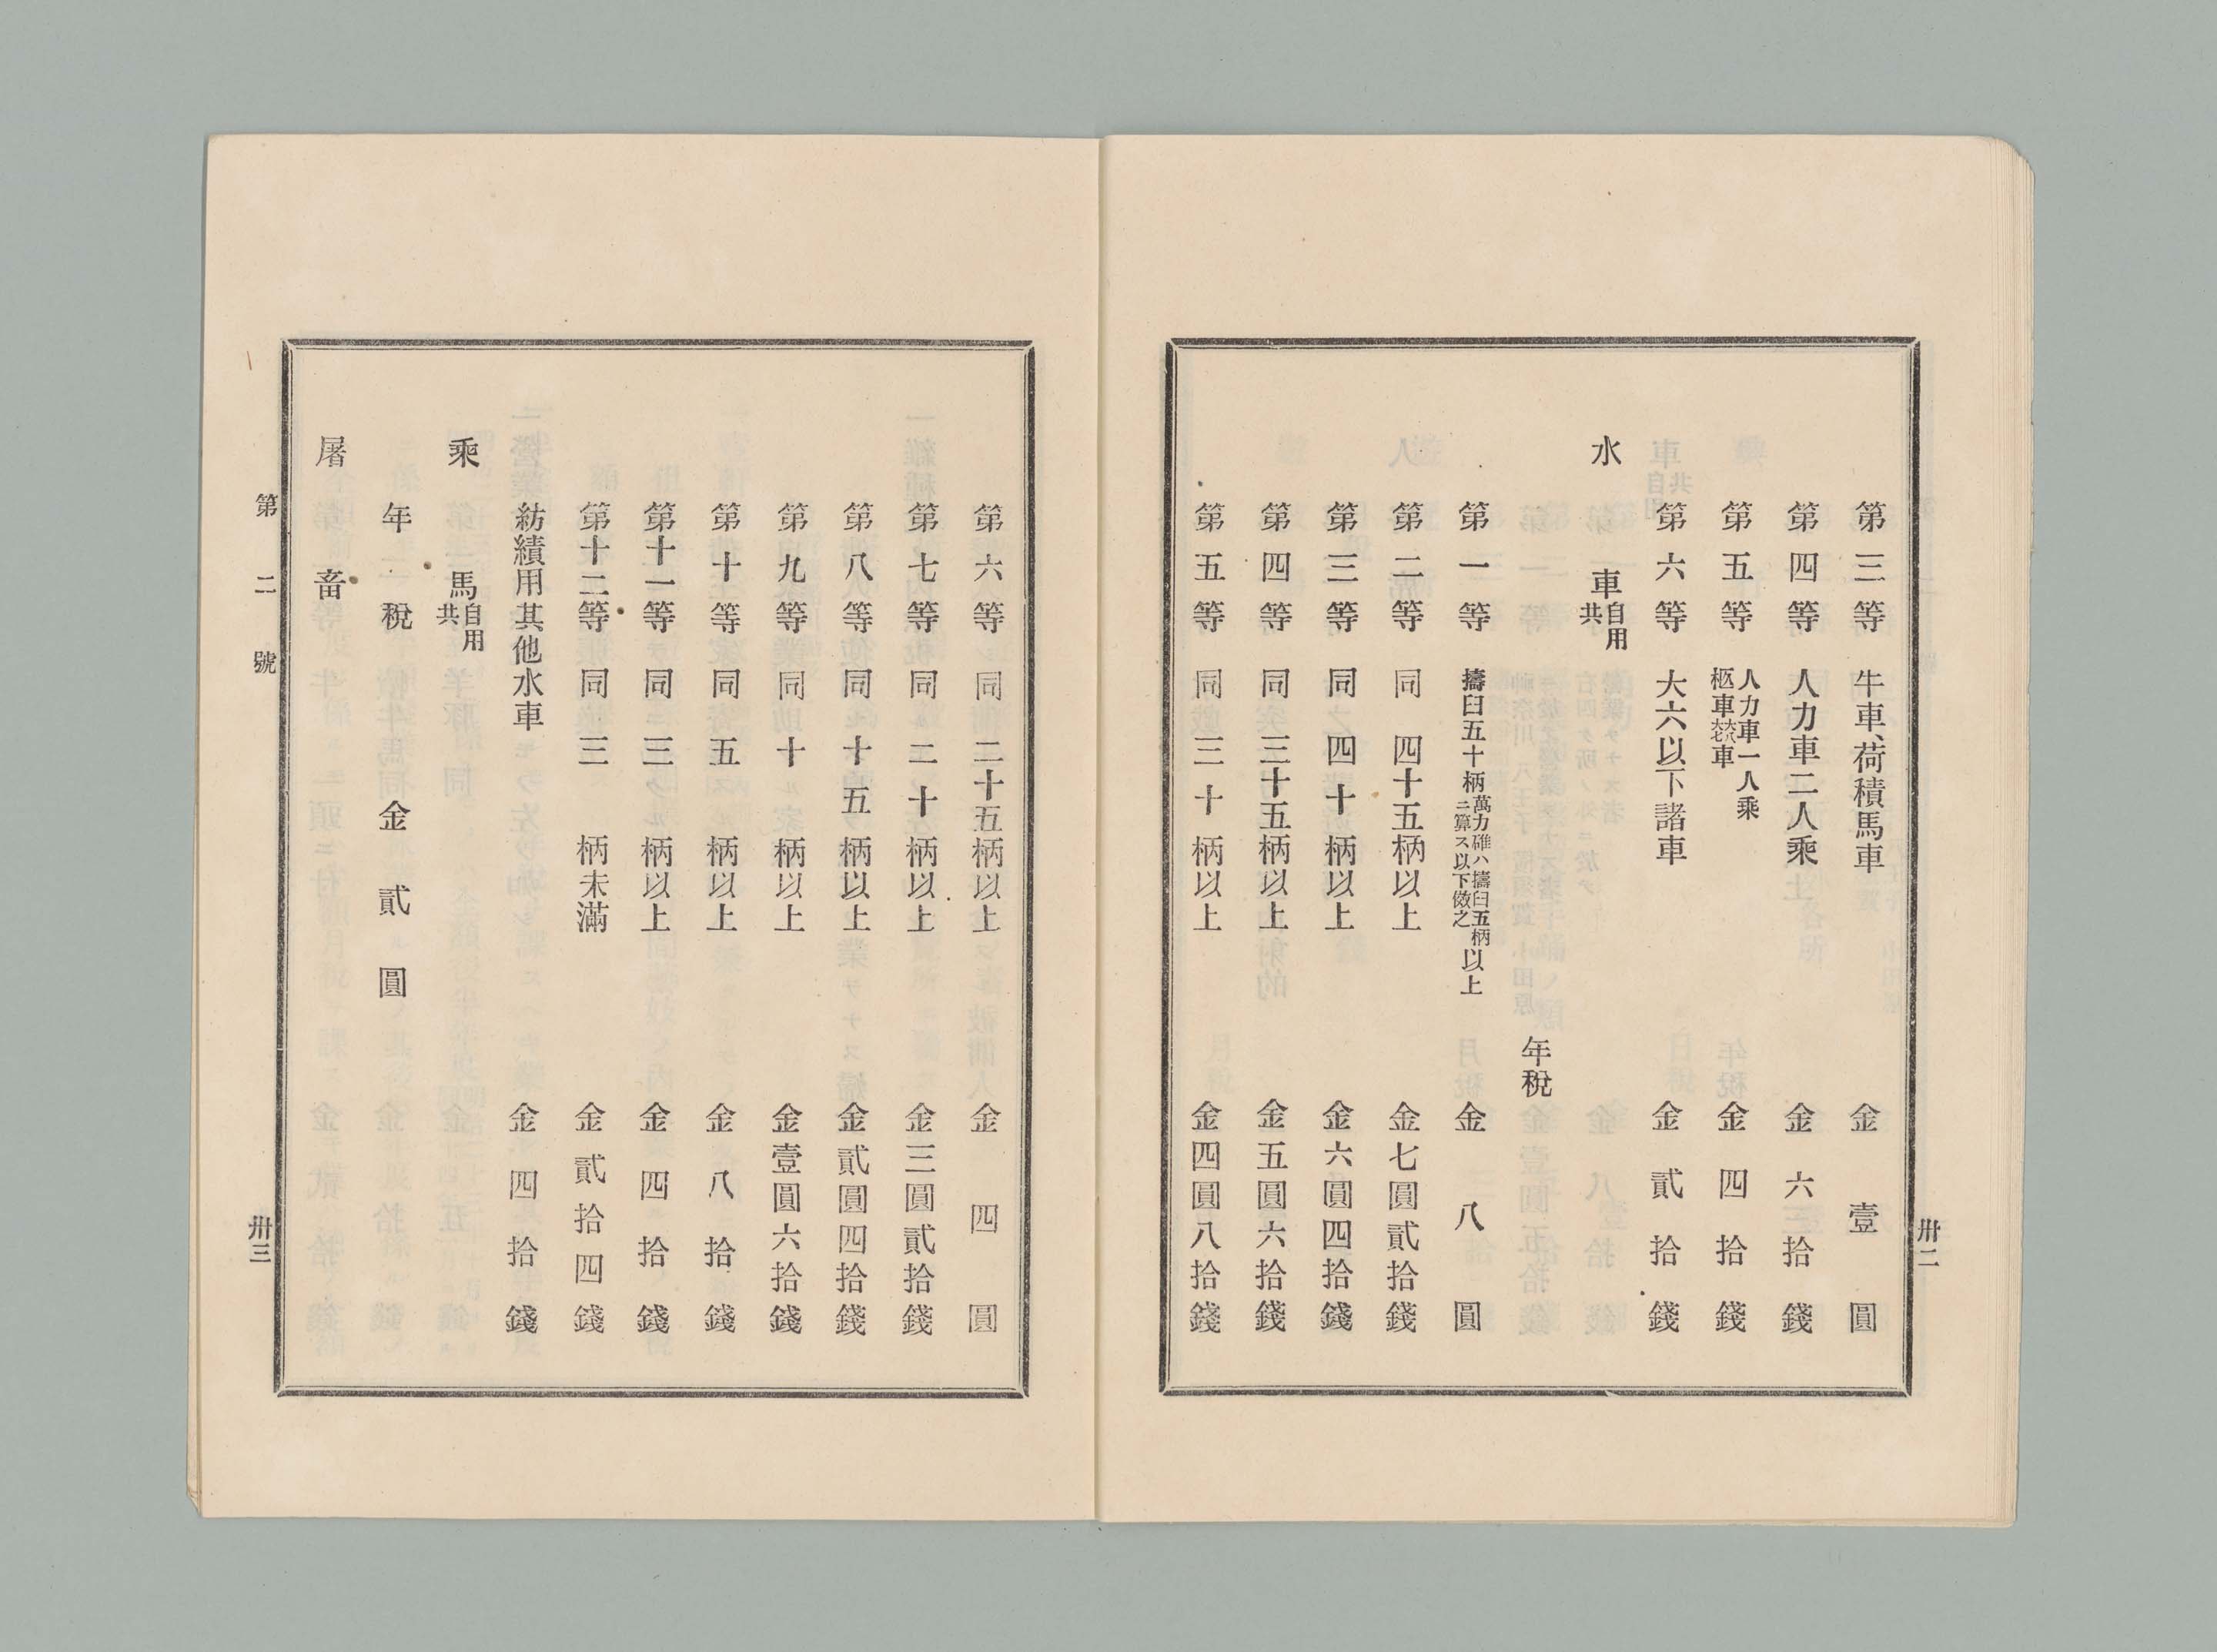 第三等 牛車、荷積馬車 金壹圓
第四等 人力車二人乘 金六拾錢
第五等 人力車一人乘 柩車大七大八車 金四拾錢
第六等 大六以下諸車 金貳拾錢
水車自用共
年稅
第一等 擣臼五十柄萬力碓ハ擣臼五柄ニ算ス以下傚之以上 金八圓
第二等 同四十五柄以上 金七圓貳拾錢
第三等 同四十柄以上 金六圓四拾錢
第四等 同三十五柄以上 金五圓六拾錢
第五等 同三十柄以上 金四圓八拾錢
卅二
第六等 同二十五柄以上 金四圓
第七等 同二十柄以上 金三圓貳拾錢
第八等 同十五柄以上 金貳圓四拾錢
第九等 同十柄以上 金壹圓六拾錢
第十等 同五柄以上 金八拾錢
第十一等 同三柄以上 金四拾錢
第十二等 同三柄未滿 金貳拾四錢
紡績用其他水車 金四拾錢
乘馬自用共
年稅 金貳圓
屠畜
第二號
卅三